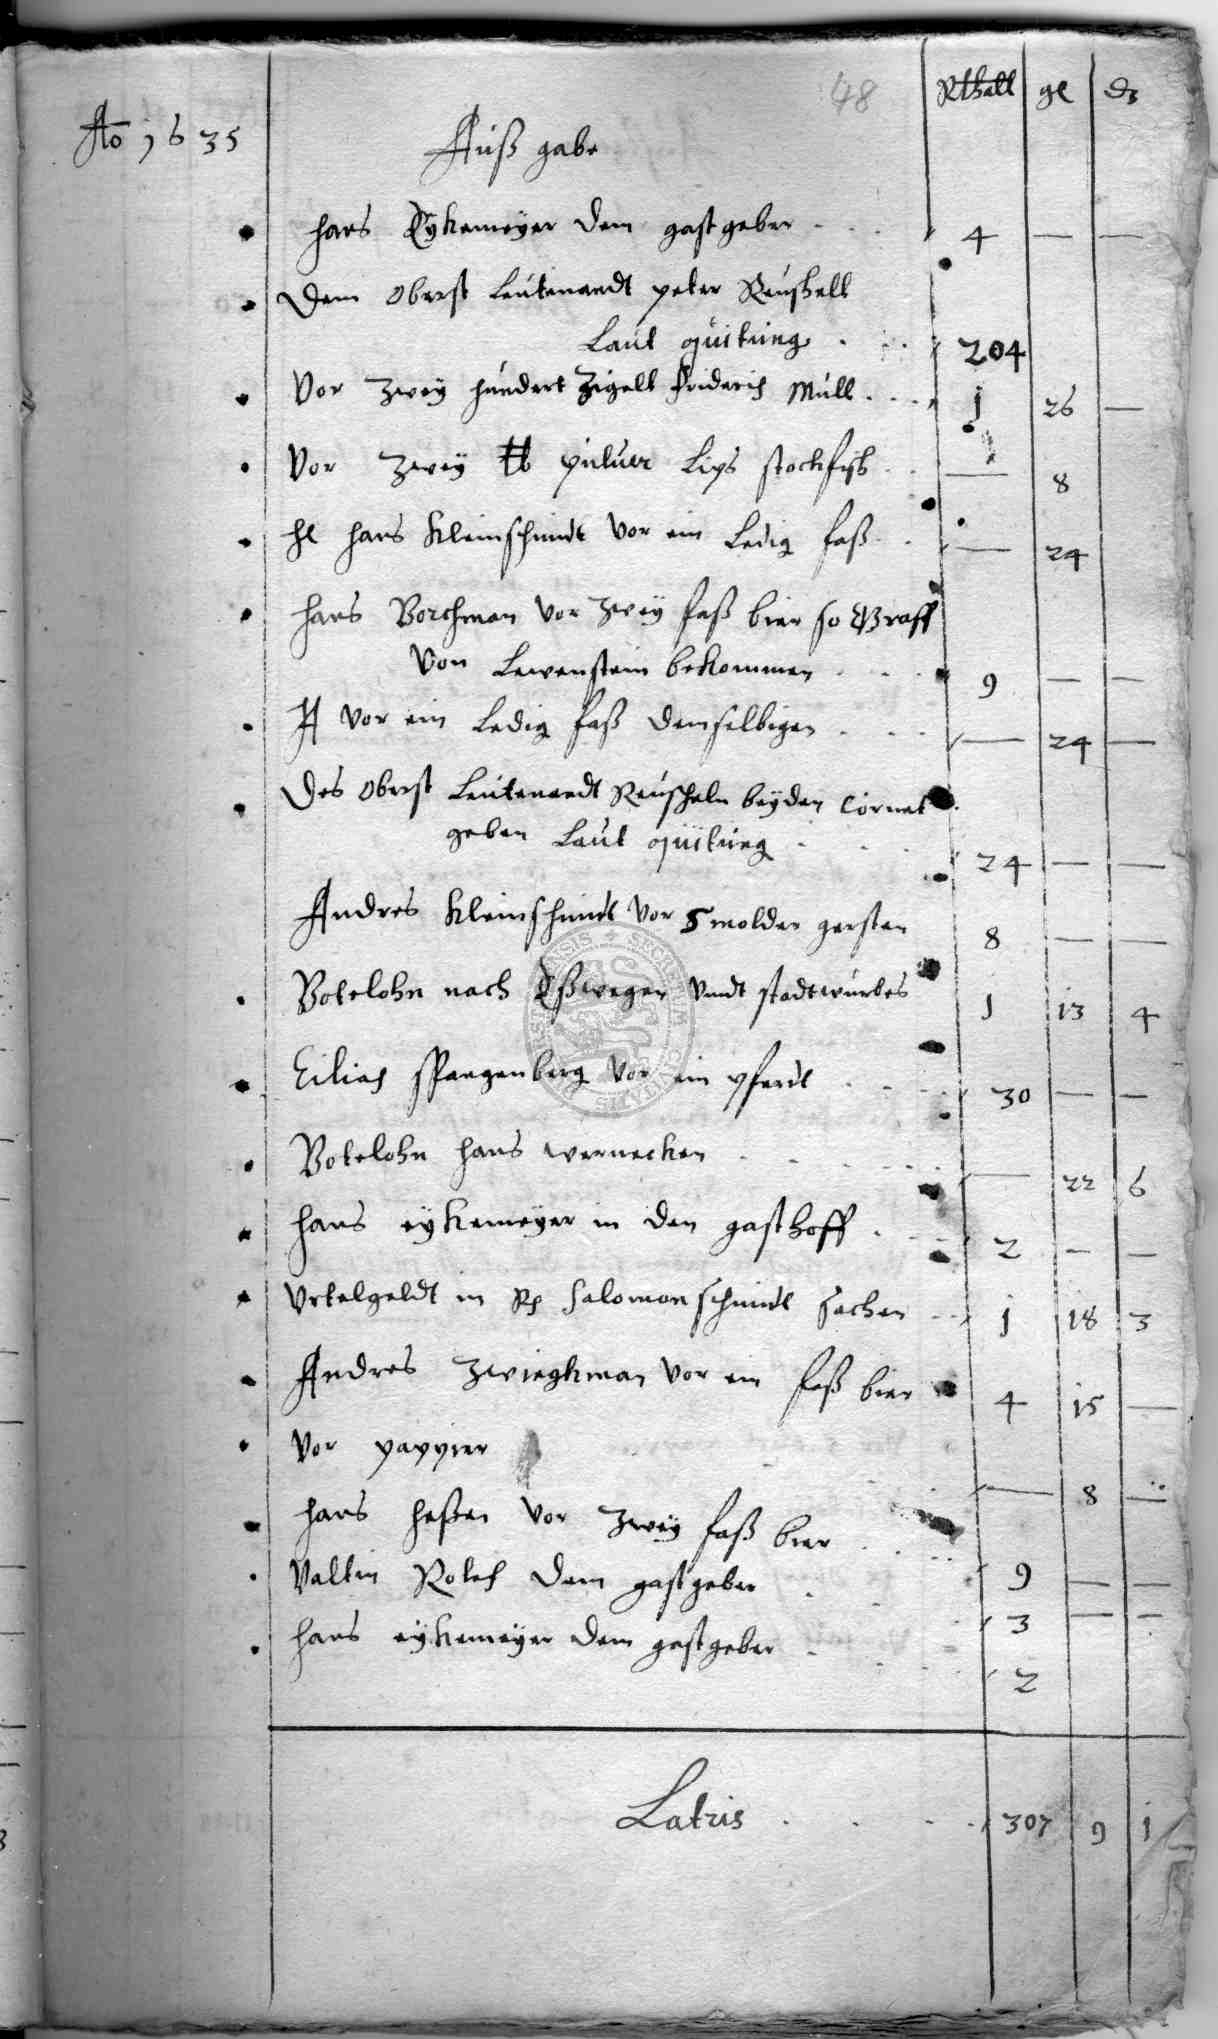 48
Rthall gl ₰
Ao 1635
Auß gabe
hans Eykemeyer dem gastgeber . . . 4 — —
Dem Oberst Leutenandt peter Reushell
Laut quitung . . . 204
Vor zwey hundert Zigell Friderich Mull . . . 1 26 —
Vor zwey ℔ puluer Lips stockfisch . . — 8
hl hans Kleinschmidt Vor ein Ledig faß . . — 24
hans Borchman Vor zwey faß bier so Graff
Von Lewenstein bekommen . . . 9 — —
It Vor ein Ledig faß demselbigen . . . — 24 —
Des Oberst Leutenandt Reuscheln beyden Cornet
geben Laut quitung . . . 24 — —
Andres Kleinschmidt Vor 5 molder gersten 8 — —
Botelohn nach Eßwegen Vnndt stadtwurbes 1 13 4
Eilias Spangenberg Vor ein pferdt . . . 30 — —
Botelohn hans wernecken . . . — 22 6
hans eykemeyer in den gasthoff . . . 2 — —
Vrtelgeldt in Salomon schmidt sachen . . 1 18 3
Andres Zwingkman Vor ein faß bier 4 15 —
Vor pappier . . . — 8 —
hans heßen Vor zwey faß bier . . . 9 — —
Valtin Rotes dem gastgeber . . . 3 — —
hans eykemeyer dem gastgeber . . . 2
Latris . . . . 307 9 1